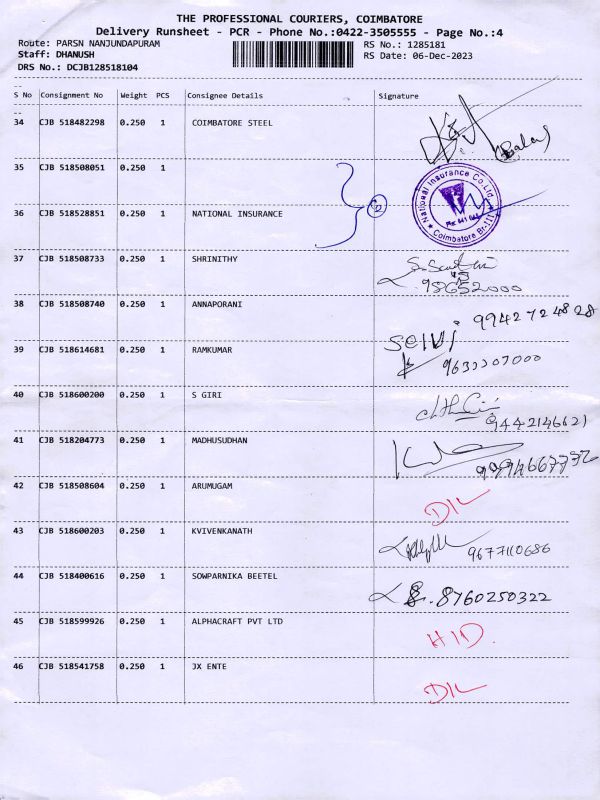 THE PROFESSIONAL COURIERS, COIMBATORE
Delivery Runsheet - PCR - Phone No.:0422-3505555 - Page No.:4
Route: PARSN NANJUNDAPURAM RS No.: 1285181
Staff: DHANUSH RS Date: 06-Dec-2023
DRS No.: DCJB128518104
S No Consignment No Weight PCS Consignee Details Signature
34 CJB 518482298 0.250 1 COIMBATORE STEEL
35 CJB 518508051 0.250 1
36 CJB 518528851 0.250 1 NATIONAL INSURANCE
National Insurance Co.Ltd.
Coimbatore Br-III
37 CJB 518508733 0.250 1 SHRINITHY
98652000
38 CJB 518508740 0.250 1 ANNAPORANI
selvi 9942724828
39 CJB 518614681 0.250 1 RAMKUMAR
40 CJB 518600200 0.250 1 S GIRI
9442146621
41 CJB 518204773 0.250 1 MADHUSUDHAN
42 CJB 518508604 0.250 1 ARUMUGAM
D/L
43 CJB 518600203 0.250 1 KVIVENKANATH
9677110686
44 CJB 518400616 0.250 1 SOWPARNIKA BEETEL
8760250322
45 CJB 518599926 0.250 1 ALPHACRAFT PVT LTD
HID.
46 CJB 518541758 0.250 1 JX ENTE
D/L